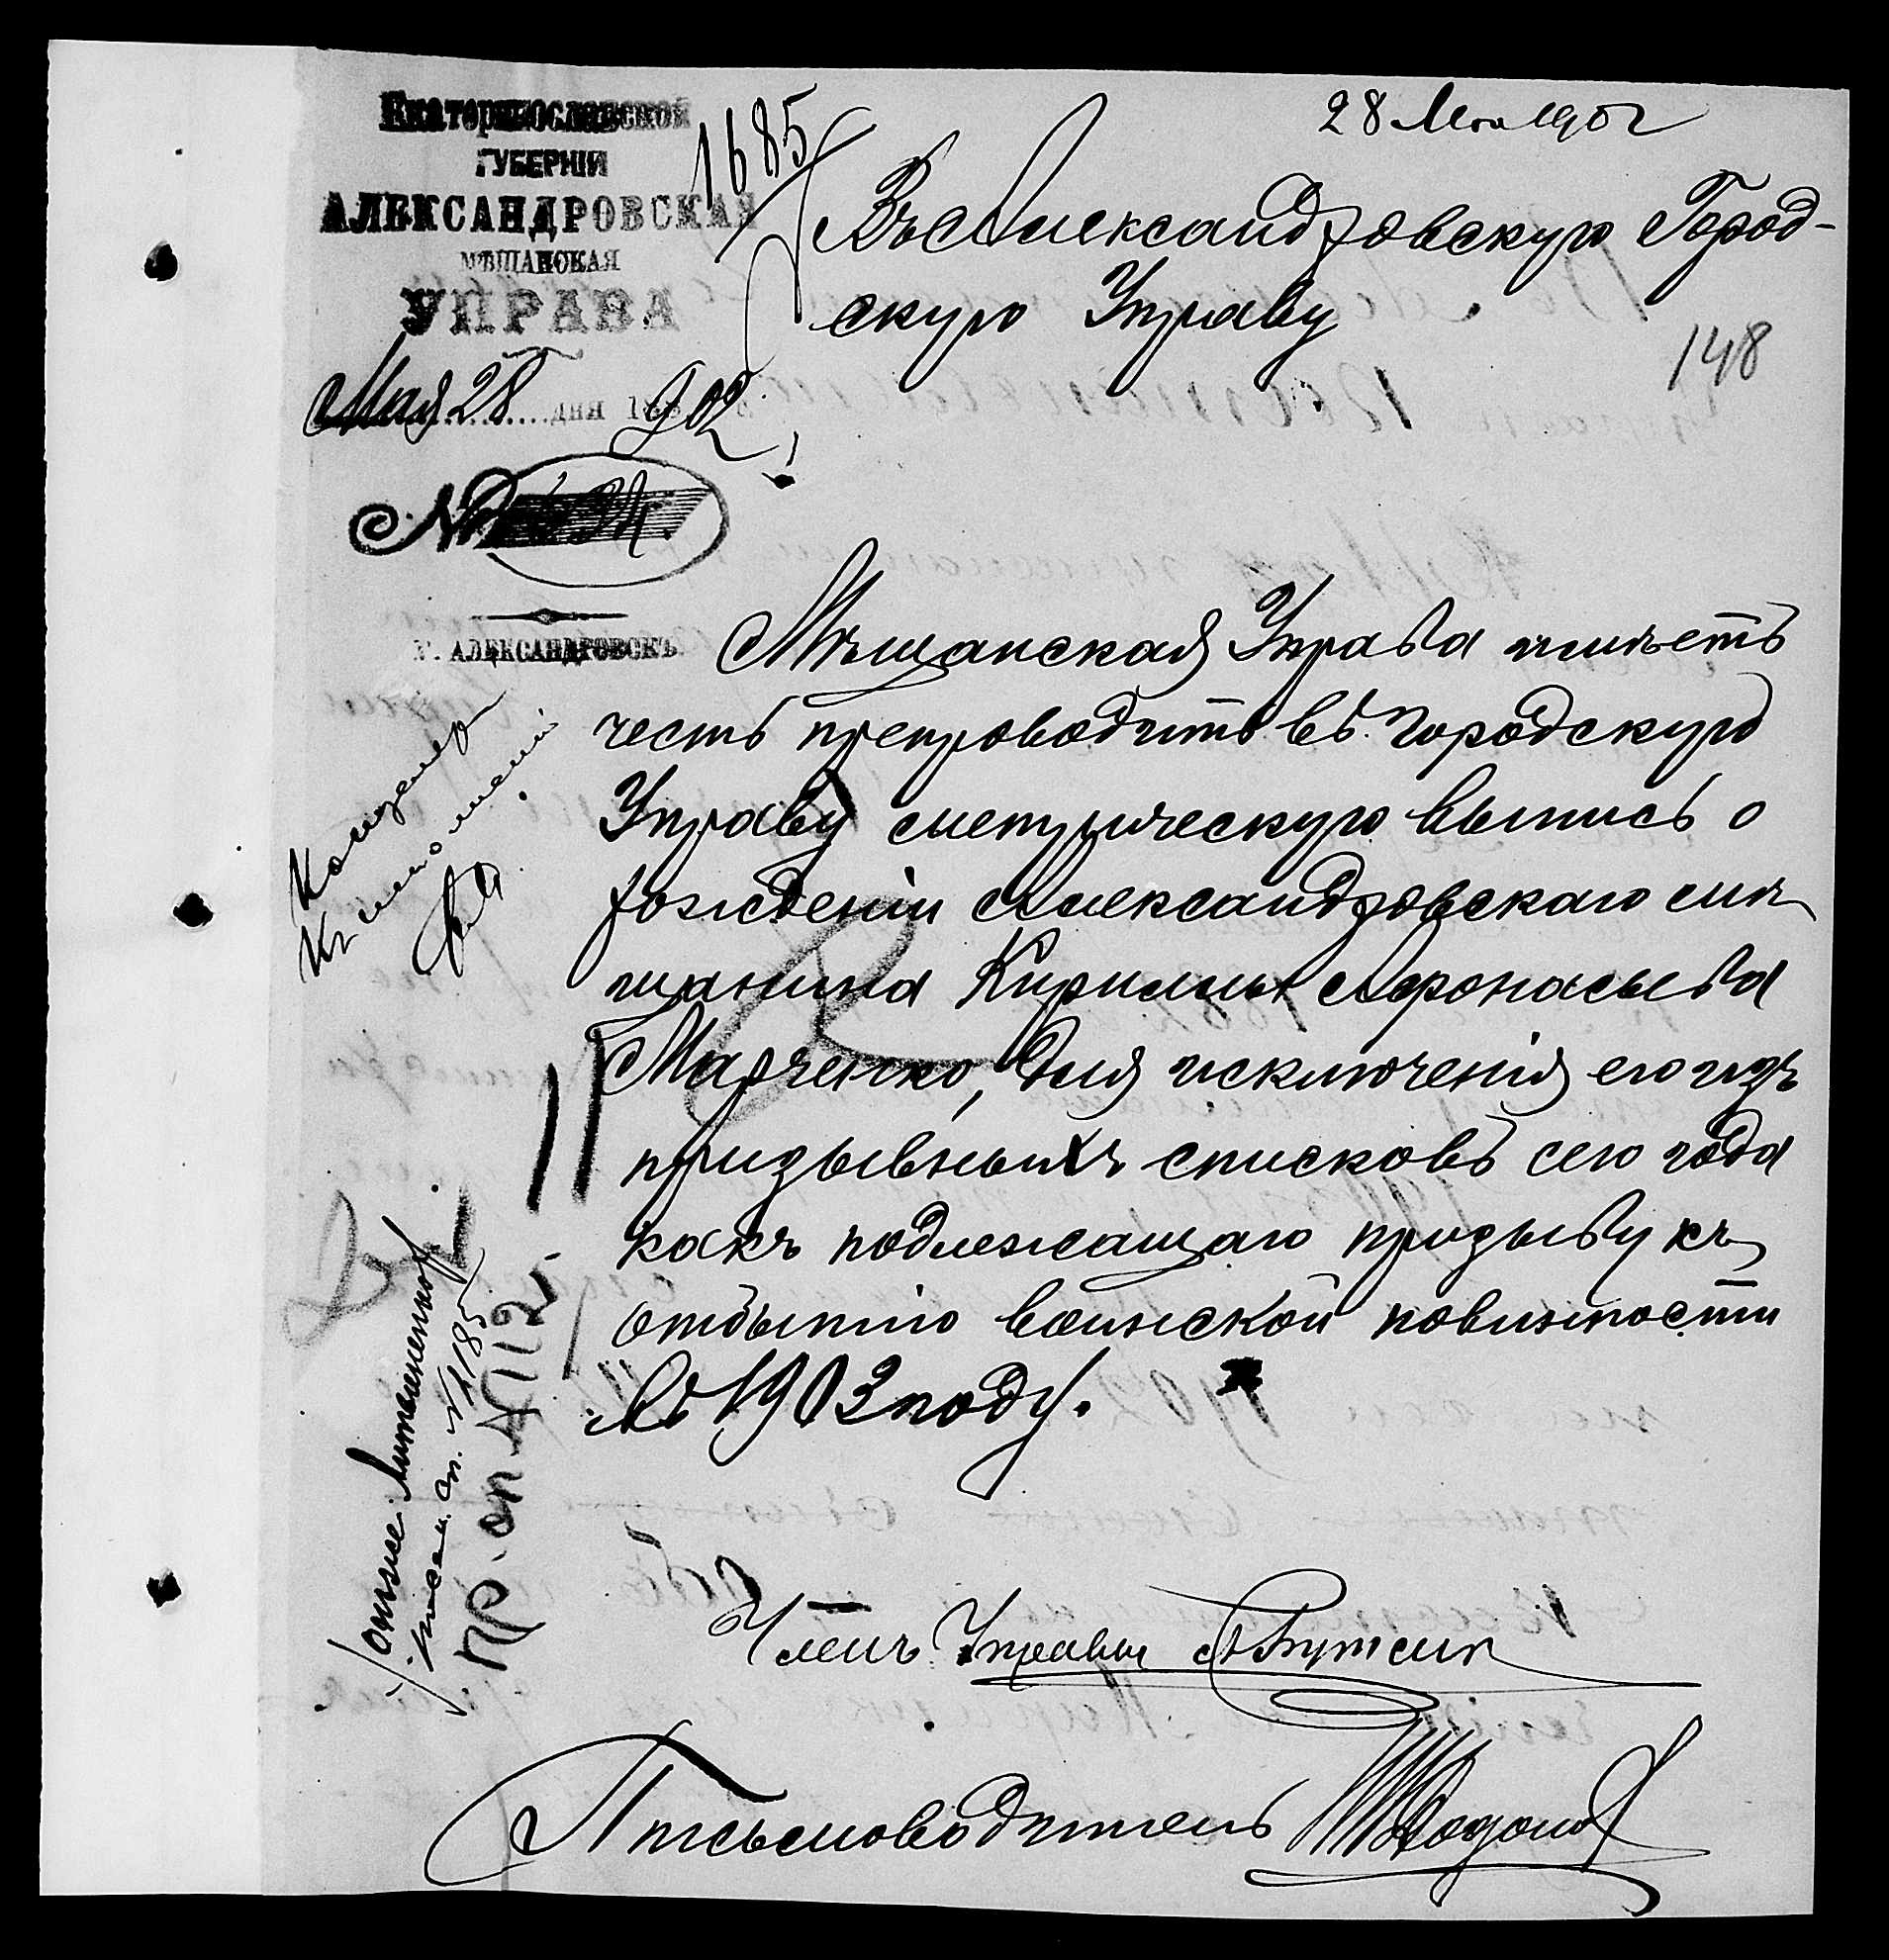 28 Мая 1902
Екатеринославской
ГУБЕРНІИ
АЛЕКСАНДРОВСКАЯ
МѢЩАНСКАЯ
УПРАВА
Мая 28 дня 902
№
г. АЛЕКСАНДРОВСКЪ
1685
Въ Александровскую Город-
скую Управу
148
Мѣщанская Управа имѣетъ
честь препроводить въ Городскую
Управу метрическую выпись о
рожденіи Александровскаго мѣ-
щанина Кирилла Афонасьева
Марченко, для исключенія его изъ
призывныхъ списковъ сего года
какъ подлежащаго призыву къ
отбытію воинской повинности
въ 1903 году.
Къ исполненію
пр. оп. 112
Членъ Управы
Письмоводитель